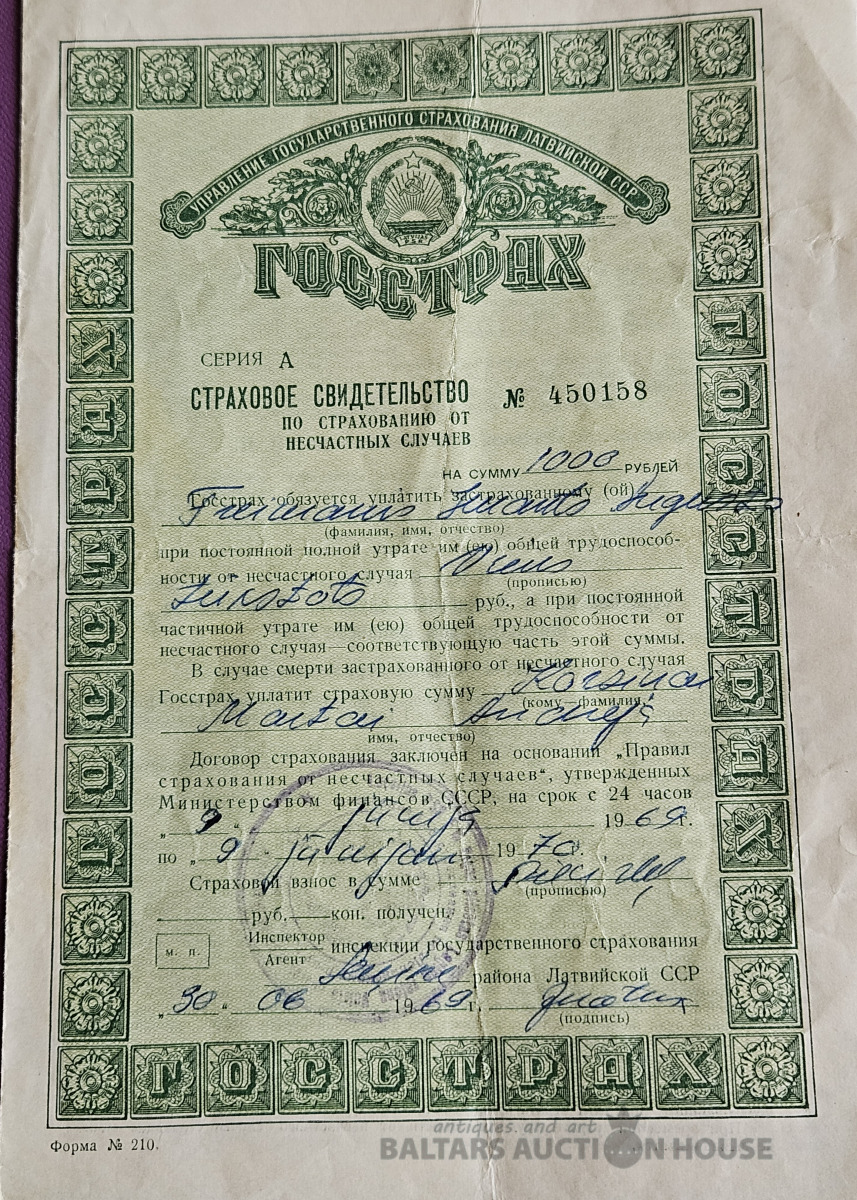 УПРАВЛЕНИЕ ГОСУДАРСТВЕННОГО СТРАХОВАНИЯ ЛАТВИЙСКОЙ ССР
ГОССТРАХ
СЕРИЯ А
СТРАХОВОЕ СВИДЕТЕЛЬСТВО № 450158
ПО СТРАХОВАНИЮ ОТ
НЕСЧАСТНЫХ СЛУЧАЕВ
НА СУММУ 1000 РУБЛЕЙ
Госстрах обязуется уплатить застрахованному (ой)
(фамилия, имя, отчество)
при постоянной полной утрате им (ею) общей трудоспособ-
ности от несчастного случая Viens
(прописью)
tūkstots руб., а при постоянной
частичной утрате им (ею) общей трудоспособности от
несчастного случая—соответствующую часть этой суммы.
В случае смерти застрахованного от несчастного случая
Госстрах уплатит страховую сумму
(кому—фамилия,
имя, отчество)
Договор страхования заключен на основании „Правил
страхования от несчастных случаев“, утвержденных
Министерством финансов СССР, на срок с 24 часов
„ 9 “ jūnija 1969г.
по „ 9 - jūnijam 1970.,
Страховой взнос в сумме
(прописью)
руб. кон. получен.
Инспектор
Агент
инспекции государственного страхования
м. п.
района Латвийской ССР
„30“ 06 1969г.
(подпись)
ГОССТРАХ
ГОССТРАХ
ГОССТРАХ
Форма № 210.
antiques and art
BALTARS AUCTION HOUSE